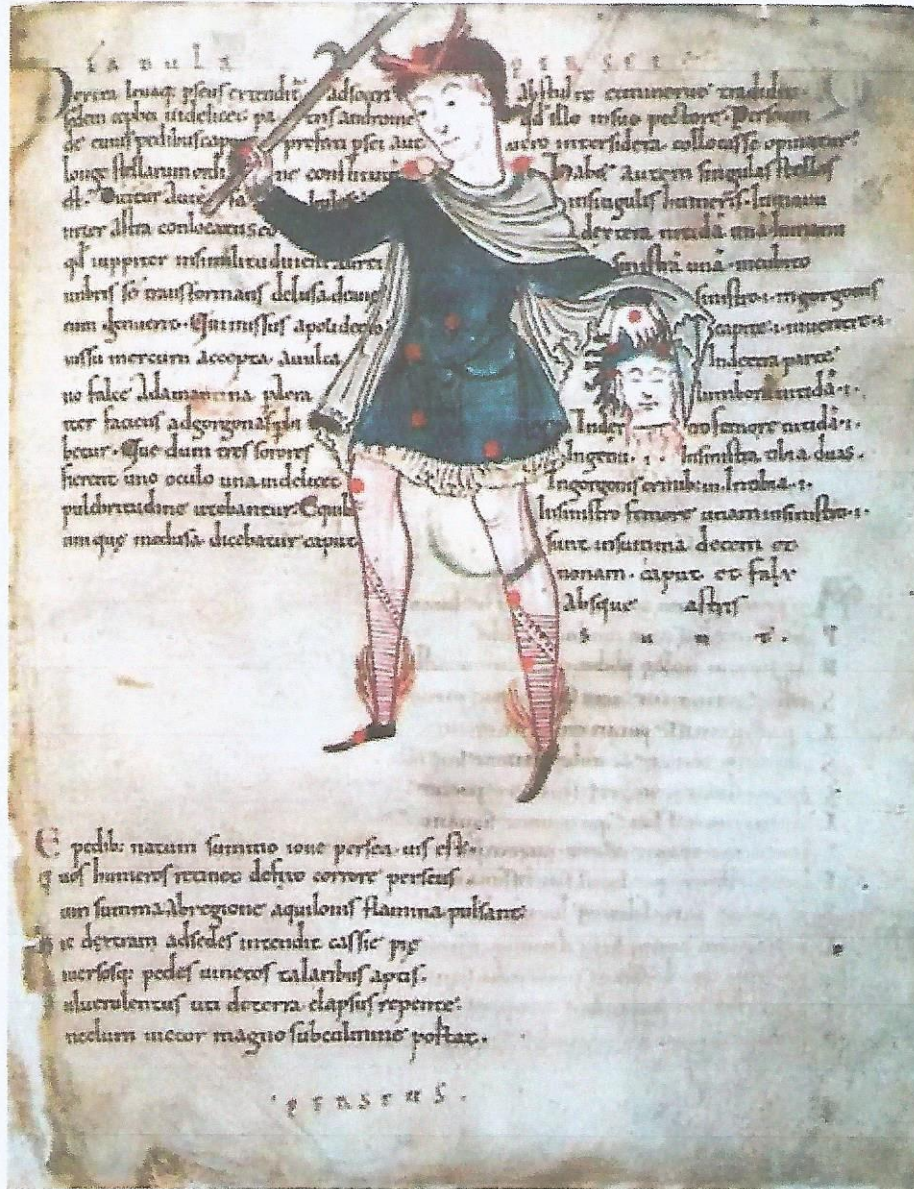 fabula persei
Dextera leuaq; pseus extendit adsoceri
sidem cephei uidelicet patris andromede
de cuius pedibus caput psei aut
longe stellarum ordine constituit
est. inter
inter astra conlocatus
qd iuppiter insimilitudinem aurei
imbris se transformans delusa danae
eum genuerit. Qui missus apolidecto
iussu mercurii accepta
uo falce adamantina
iter faciens adgorgonas
betur. Que dum tres sorores
fierent uno oculo una uidelicet
pulchritudine utebantur. Equibus
una que medusa dicebatur caput
Abstulit et minerue tradidit.
qd illo insuo pectore. Perseum
uero intersidera. collocasse opinatur.
Habet autem singulas stellas
insingulis humeris. Inmanu
dextera nitidā unā. Inmanu
sinistrā unā. incubito
sinistro. i. ingorgonis
capite. i. inuentre. i.
Indextra parte
lumbori nitidā. i.
Indextro femore nitidā. i.
Ingenu. i. Insinistra tibia duas.
Ingorgonis crinib; iii. Intibia. i.
Insinistro femore unam insinistro. i.
sunt insumma decem et
nonam. caput et falx
Absque astris
sunt.
E pedib; natum summo ioue persea uis est.
quos humeros retinet defixo corpore perseus
um summa Abregione aquilonis flamina pulsant
hic dextram adsedes intendit cassiepie
iuersosq; pedes uinctos talaribus aptis.
uluerulentus uti deterra elapsus repente.
neclum uector magno subculmine postat.
perseus.